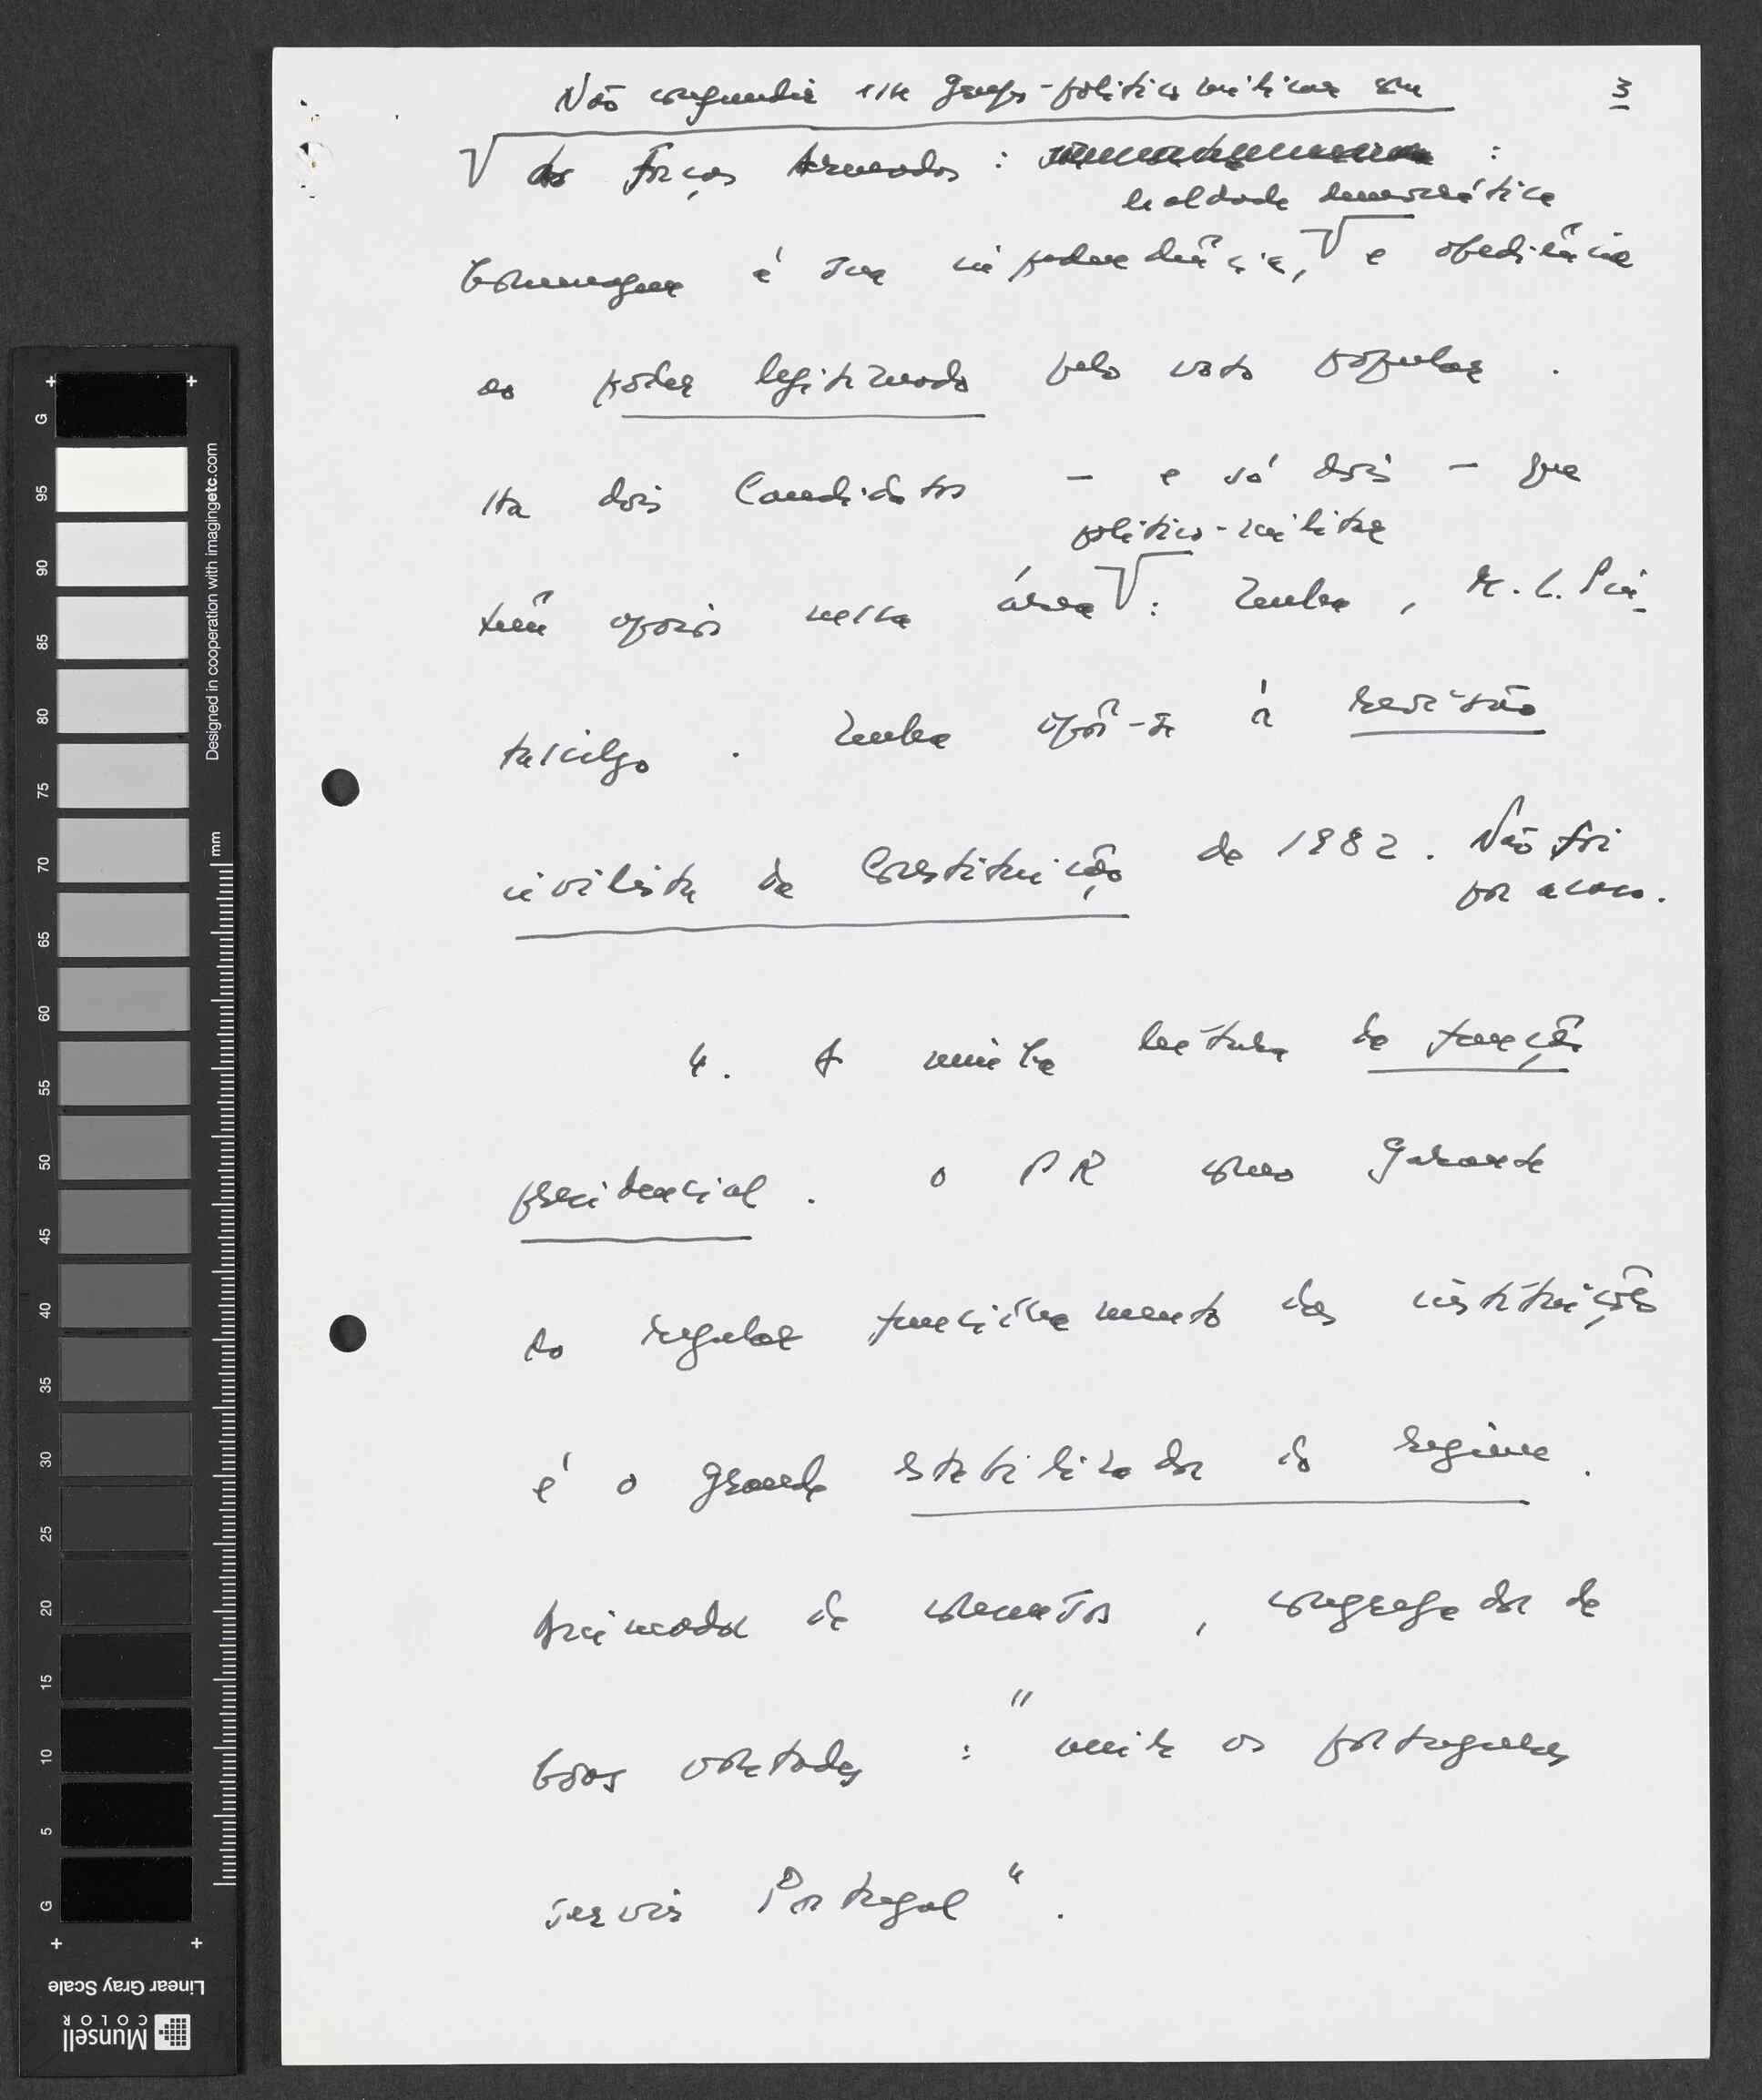 3
Não confundir esse grupo-político militar com
as Forças Armadas:
:
lealdade democrática
homenagem à sua independência, e obediência
ao poder legitimado pelo voto popular.
Há dois Candidatos - e só dois - que
político-militar
têm apoios nessa área: Zenha, M. L. Pin-
tasilgo. Zenha opôs-se à revisão
civilista da Constituição de 1982. Não foi
por acaso.
4. A minha leitura da função
presidencial. o PR como garante
do regular funcionamento das instituições
é o grande estabilizador do regime.
de consensos, congregador de
boas vontades: "unir os portugueses
servir Portugal".
G
95
90
85
80
75
70
65
60
55
50
45
40
35
30
25
20
15
10
5
G
mm
Designed in cooperation with imagingetc.com
Linear Gray Scale
Munsell
COLOR